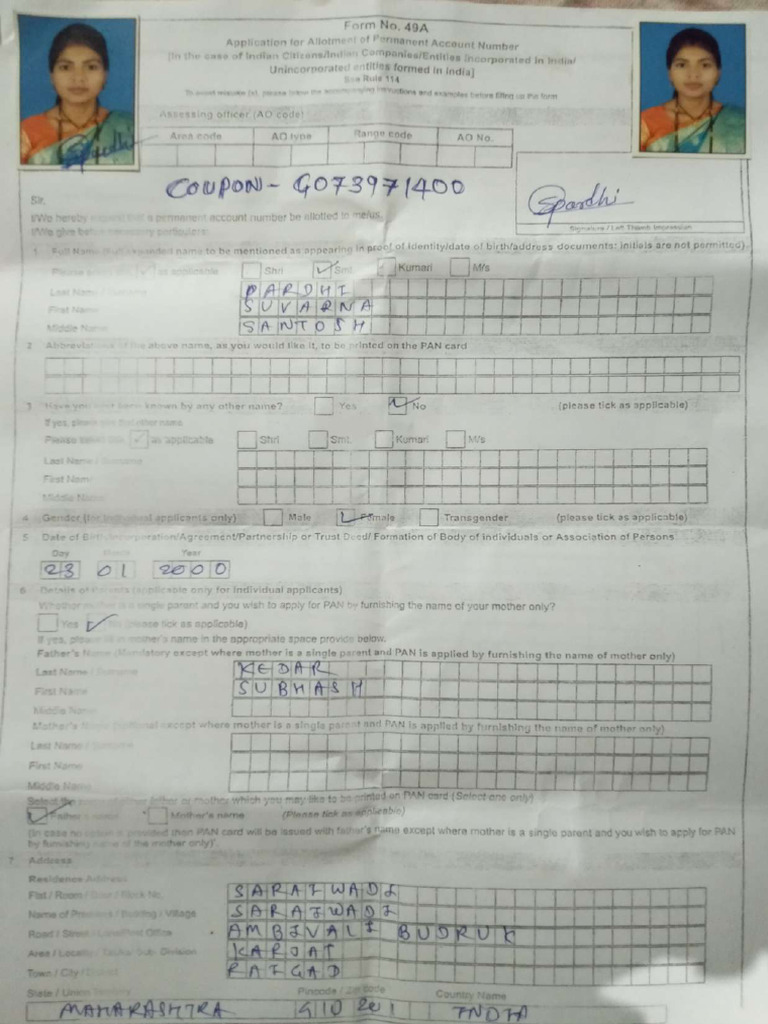 Form No. 49A
Application for Allotment of Permanent Account Number
[In the case of Indian Citizens/Indian Companies/Entities incorporated in India/
Unincorporated entities formed in India]
See Rule 114
To avoid mistake (s), please follow the accompanying instructions and examples before filling up the form
Assessing officer (AO code)
Area code AO type Range code AO No.
COUPON - G073971400
Sir,
I/We hereby request that a permanent account number be allotted to me/us.
I/We give below necessary particulars:
Spardhi
Spardhi
Signature / Left Thumb Impression
1 Full Name (Full expanded name to be mentioned as appearing in proof of identity/date of birth/address documents: initials are not permitted)
Please select title ✓ as applicable Shri ✓ Smt. Kumari M/s
Last Name / Surname PARDHI
First Name SUVARNA
Middle Name SANTOSH
2 Abbreviations of the above name, as you would like it, to be printed on the PAN card
3 Have you ever been known by any other name? Yes ✓ No (please tick as applicable)
If yes, please give that other name
Please select title ✓ as applicable Shri Smt. Kumari M/s
Last Name / Surname
First Name
Middle Name
4 Gender (for individual applicants only) Male ✓ Female Transgender (please tick as applicable)
5 Date of Birth/Incorporation/Agreement/Partnership or Trust Deed/ Formation of Body of individuals or Association of Persons
Day Month Year
23 01 2000
6 Details of Parents (applicable only for Individual applicants)
Whether mother is a single parent and you wish to apply for PAN by furnishing the name of your mother only?
Yes ✓ No (please tick as applicable)
If yes, please fill in mother's name in the appropriate space provide below.
Father's Name (Mandatory except where mother is a single parent and PAN is applied by furnishing the name of mother only)
Last Name / Surname KEDAR
First Name SUBHASH
Middle Name
Mother's Name (optional except where mother is a single parent and PAN is applied by furnishing the name of mother only)
Last Name / Surname
First Name
Middle Name
Select the name of either father or mother which you may like to be printed on PAN card (Select one only)
✓ Father's name Mother's name (Please tick as applicable)
(In case no option is provided then PAN card will be issued with father's name except where mother is a single parent and you wish to apply for PAN
by furnishing name of the mother only)
7 Address
Residence Address
Flat / Room / Door / Block No. SARAIWADI
Name of Premises / Building / Village SARAIWADI
Road / Street / Lane/Post Office AMBIVALI BUDRUK
Area / Locality / Taluka/ Sub- Division KARJAT
Town / City / District RAIGAD
State / Union Territory Pincode / Zip code Country Name
MAHARASHTRA 410 201 INDIA